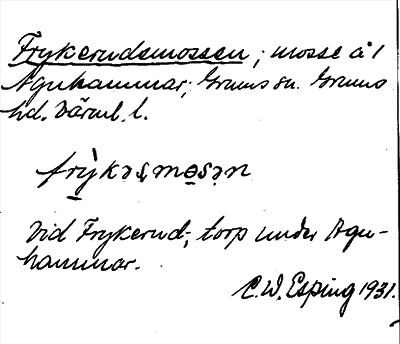 Frykerudsmossen; mosse å 1
Agnhammar; Grums sn. Grums
hd. Värml. l.
frỳkəsmo̲sən
Vid Frykerud-, torp under Agn-
hammar.
C.W. Esping 1931.